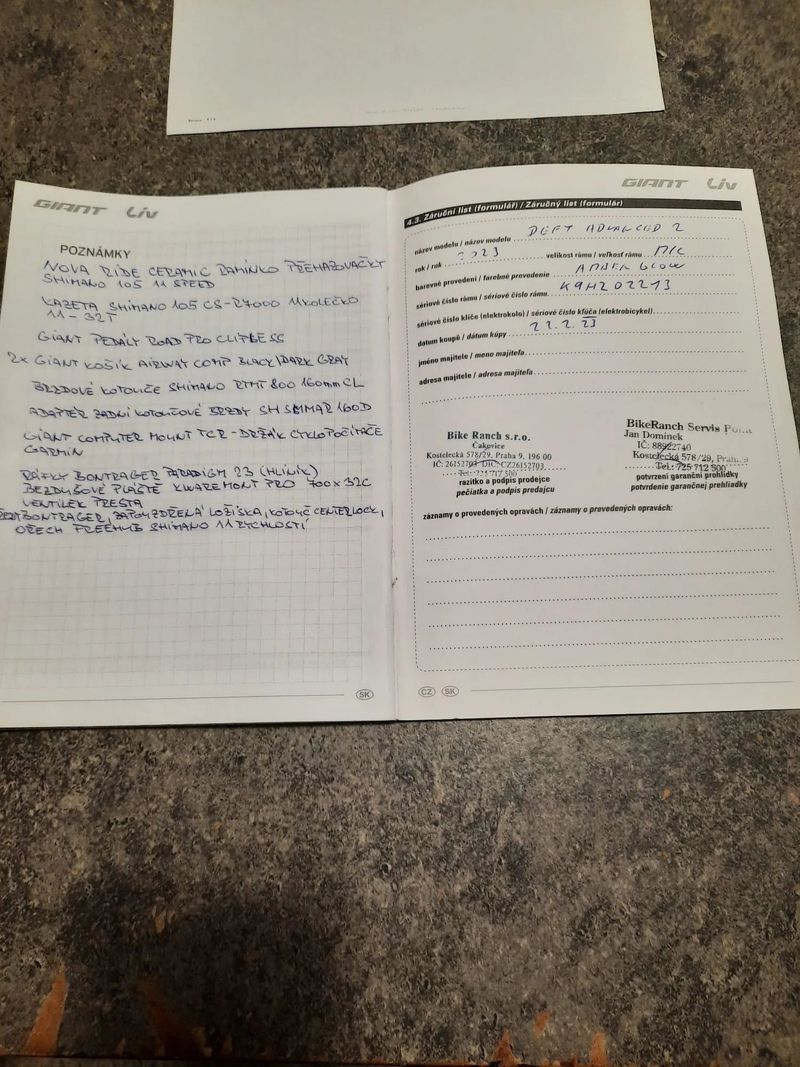 GIANT Liv
POZNÁMKY
NOVA RIDE CERAMIC RAMÍNKO PŘEHAZOVAČKY
SHIMANO 105 11 SPEED
KAZETA SHIMANO 105 CS-R7000 11 KOLEČKO
11-32T
GIANT PEDÁLY ROAD PRO CLIPLESS
2x GIANT KOŠÍK AIRWAY COMP BLACK/DARK GRAY
BRZDOVÉ KOTOUČE SHIMANO RTMT 800 160mm CL
ADAPTÉR ZADNÍ KOTOUČOVÉ BRZDY SH SMMAR 160D
GIANT COMPUTER MOUNT TCR - DRŽÁK CYKLOPOČÍTAČE
GARMIN
RÁFKY BONTRAGER PARADIGM 23 (HLINÍK)
BEZDUŠOVÉ PLÁŠTĚ KWAREMONT PRO 700x32C
VENTILEK PRESTA
BONTRAGER, ZAPOUZDŘENÁ LOŽISKA, KOTOUČ CENTERLOCK,
OŘECH FREEHUB SHIMANO 11 RYCHLOSTÍ
SK
GIANT Liv
4.3. Záruční list (formulář) / Záručný list (formulár)
název modelu / názov modelu DEFY ADVANCED 2
rok / rok 2023 velikost rámu / veľkosť rámu M/L
barevné provedení / farebné prevedenie AMBER GLOW
sériové číslo rámu / sériové číslo rámu K9HZ02213
sériové číslo klíče (elektrokolo) / sériové číslo kľúča (elektrobicykel)
datum koupě / dátum kúpy 22.2.23
jméno majitele / meno majiteľa
adresa majitele / adresa majiteľa
Bike Ranch s.r.o.
Čakovice
Kostelecká 578/29, Praha 9, 196 00
IČ: 26152703 DIČ: CZ26152703
Tel.: 725 717 500
razítko a podpis prodejce
pečiatka a podpis predajcu
BikeRanch Servis
Jan Dominek
IČ: 88922740
Kostelecká 578/29, Praha 9
Tel.: 725 712 500
potvrzení garanční prohlídky
potvrdenie garančnej prehliadky
záznamy o provedených opravách / záznamy o prevedených opravách:
CZ SK